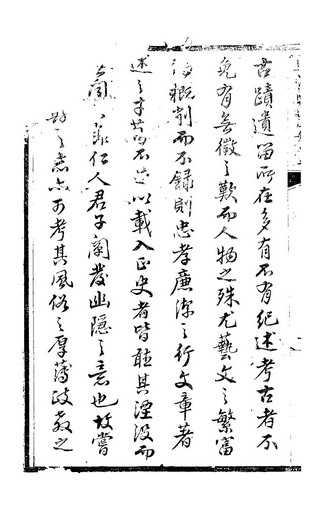 古蹟遺留所在多有不有紀述考古者不
免有無徵之歎而人物之殊尤藝文之繁富
概削而不錄則忠孝廉潔之行文章著
述之才苟不足以載入正史者皆聽其湮沒而
仁人君子闡發幽隱之意也故嘗
之志亦可考其風俗之厚薄政教之